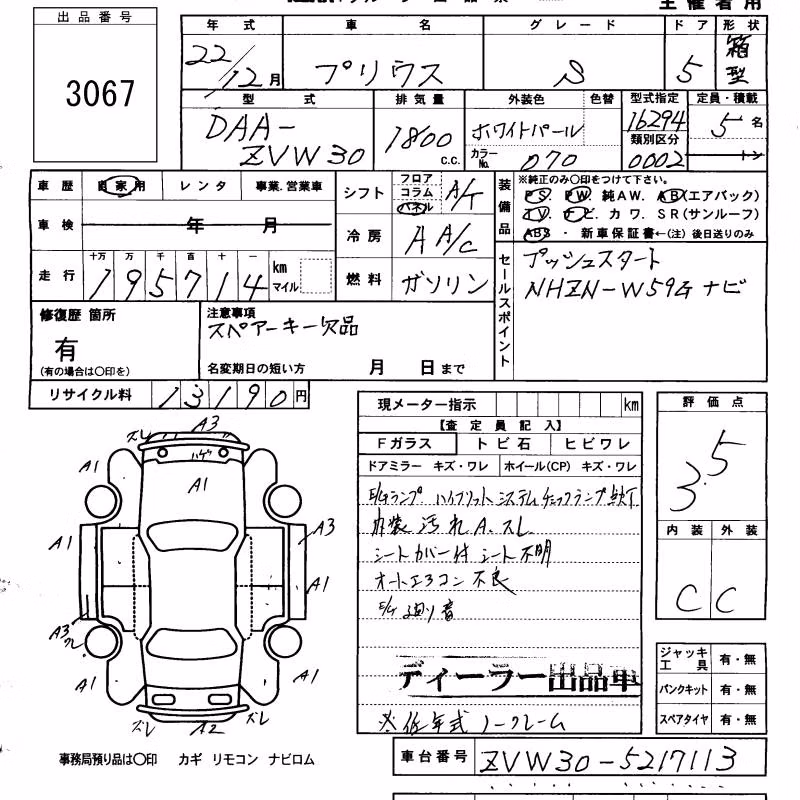 主催者用
出品番号
3067
年式 車名 グレード ドア 形状
22/12月 プリウス S 5 箱型
型式 排気量 外装色 色替 型式指定 定員・積載
DAA-ZVW30 1800 c.c. ホワイトパール 16294 5名
カラーNo. 070 類別区分 0002 トン
車歴 自家用 レンタ 事業.営業車
車検 年 月
走行 十万 万 千 百 十 一
195714 km マイル
シフト フロア コラム パネル A/T
冷房 A A/C
燃料 ガソリン
装備品 ※純正のみ〇印をつけて下さい。
PS. PW. 純AW. AB(エアバック)
TV. ナビ. カワ. SR(サンルーフ)
ABS ・ 新車保証書←(注) 後日送りのみ
セールスポイント
プッシュスタート
NHZN-W59G ナビ
修復歴 箇所
有
(有の場合は〇印を)
注意事項
スペアーキー欠品
名変期日の短い方 月 日まで
リサイクル料 13190円
現メーター指示 km
【査定員記入】
Fガラス トビ石 ヒビワレ
ドアミラー キズ・ワレ ホイール(CP) キズ・ワレ
E/Gランプ ハイブリットシステムチェックランプ点灯
内装 汚れ A. スレ
シートカバー付 シート不明
オートエアコン 不良
E/G 廻り音
ディーラー出品車
※低年式 ノークレーム
評価点
3.5
内装 外装
C C
ジャッキ工具 有・無
パンクキット 有・無
スペアタイヤ 有・無
ズレ A3
ハゲ
A1 A1
A1 A3
A1
A3 ワレ
A1 A1
ズレ A2 ズレ
事務局預り品は〇印 カギ リモコン ナビロム
車台番号 ZVW30-5217113